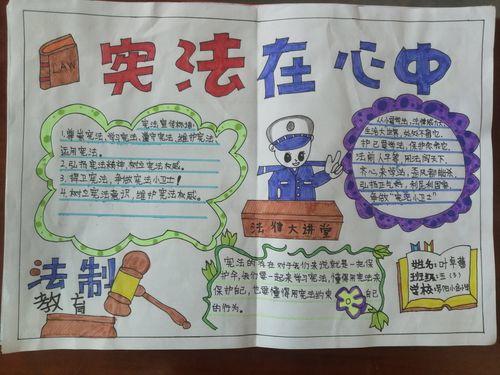 LAW
宪法在心中
宪法宣传标语:
1.尊崇宪法,学习宪法,遵守宪法,维护宪法,
运用宪法。
2.弘扬宪法精神,树立宪法权威。
3.捍卫宪法,争做宪法小卫士!
4.树立宪法意识,维护宪法权威。
从小爱宪法,法律威力大,
生活大世界,处处不离它,
护己靠宪法,保护你我它,
法前人平等,
齐心来守法,
弘扬正气物,利民利国家,
争做"宪法小卫士"
法律大讲堂
法制
教育
宪法的存在对于我们来说就是一把保
护伞,我们要一起来学习宪法,懂得用宪法来
保护自己,也要懂得用宪法约束自己
的行为。
姓名:叶早蕾
班级:三(3)
学校: